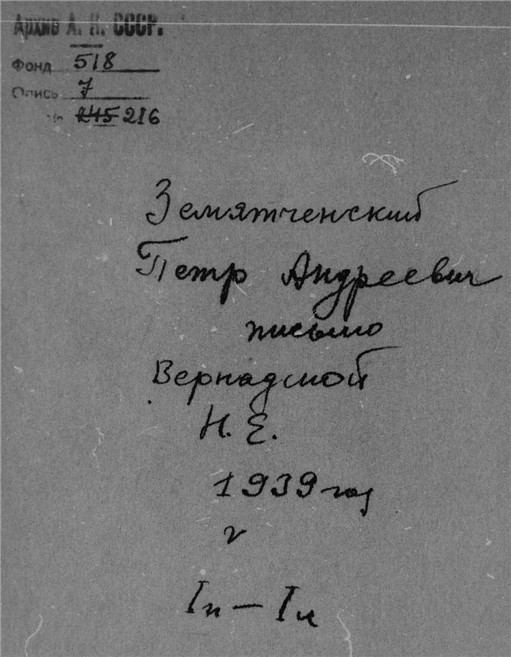 Архив А. Н. СССР.
Фонд 518
Опись 7
№ 245 216
Земятченский
Петр Андреевич
письмо
Вернадской
Н. Е.
1939 год
v
1п – 1л